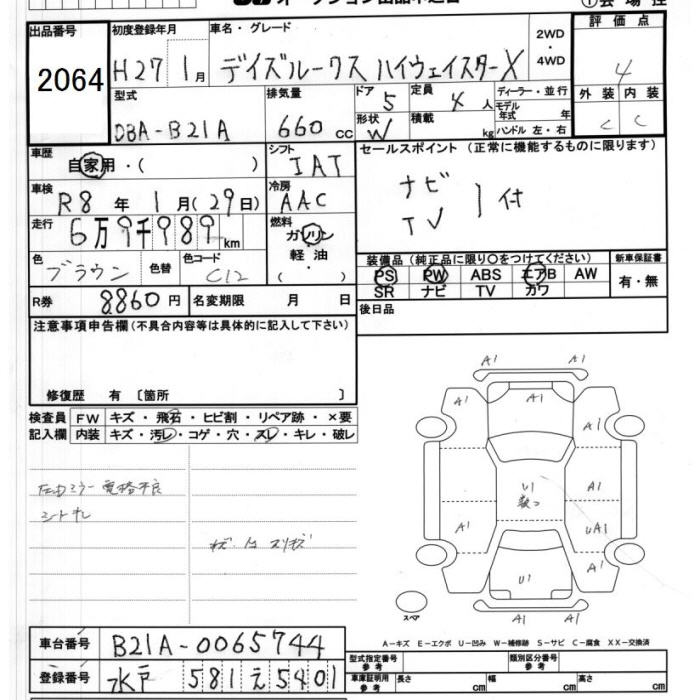 出品番号 2064
初度登録年月 H27 1月
車名・グレード デイズルークス ハイウェイスターX
2WD・4WD
評価点 4
外装 内装
C C
型式 DBA-B21A
排気量 660 cc
ドア 5
形状 W
定員 4人
積載 kg
ディーラー・並行
モデル年式 年
ハンドル 左・右
車歴 自家用・( )
シフト IAT
車検 R8年 1月(29日)
冷房 AAC
走行 6万9千989 km
燃料 ガソリン 軽油 ( )
色 ブラウン 色替
色コード C12
R券 8860円
名変期限 月 日
セールスポイント (正常に機能するものに限ります)
ナビ
TV 付
装備品 (純正品に限り〇をつけてください)
PS PW ABS エアB AW
SR ナビ TV カワ
新車保証書
有・無
後日品
注意事項申告欄(不具合内容等は具体的に記入して下さい)
修復歴 有 [箇所 ]
検査員記入欄
FW キズ・飛石・ヒビ割・リペア跡・×要
内装 キズ・汚レ・コゲ・穴・スレ・キレ・破レ
ミラー 電格不良
A1 A1
A1
A1 A1
U1 A1
A1 UA1
U1 A1
A1 A1
スペア
A-キズ E-エクボ U-凹み W-補修跡 S-サビ C-腐食 XX-交換済
車台番号 B21A-0065744
登録番号 水戸 581 え 5401
型式指定番号 参考
類別区分番号 参考
車庫証明用 参考 長さ cm 幅 cm 高さ cm